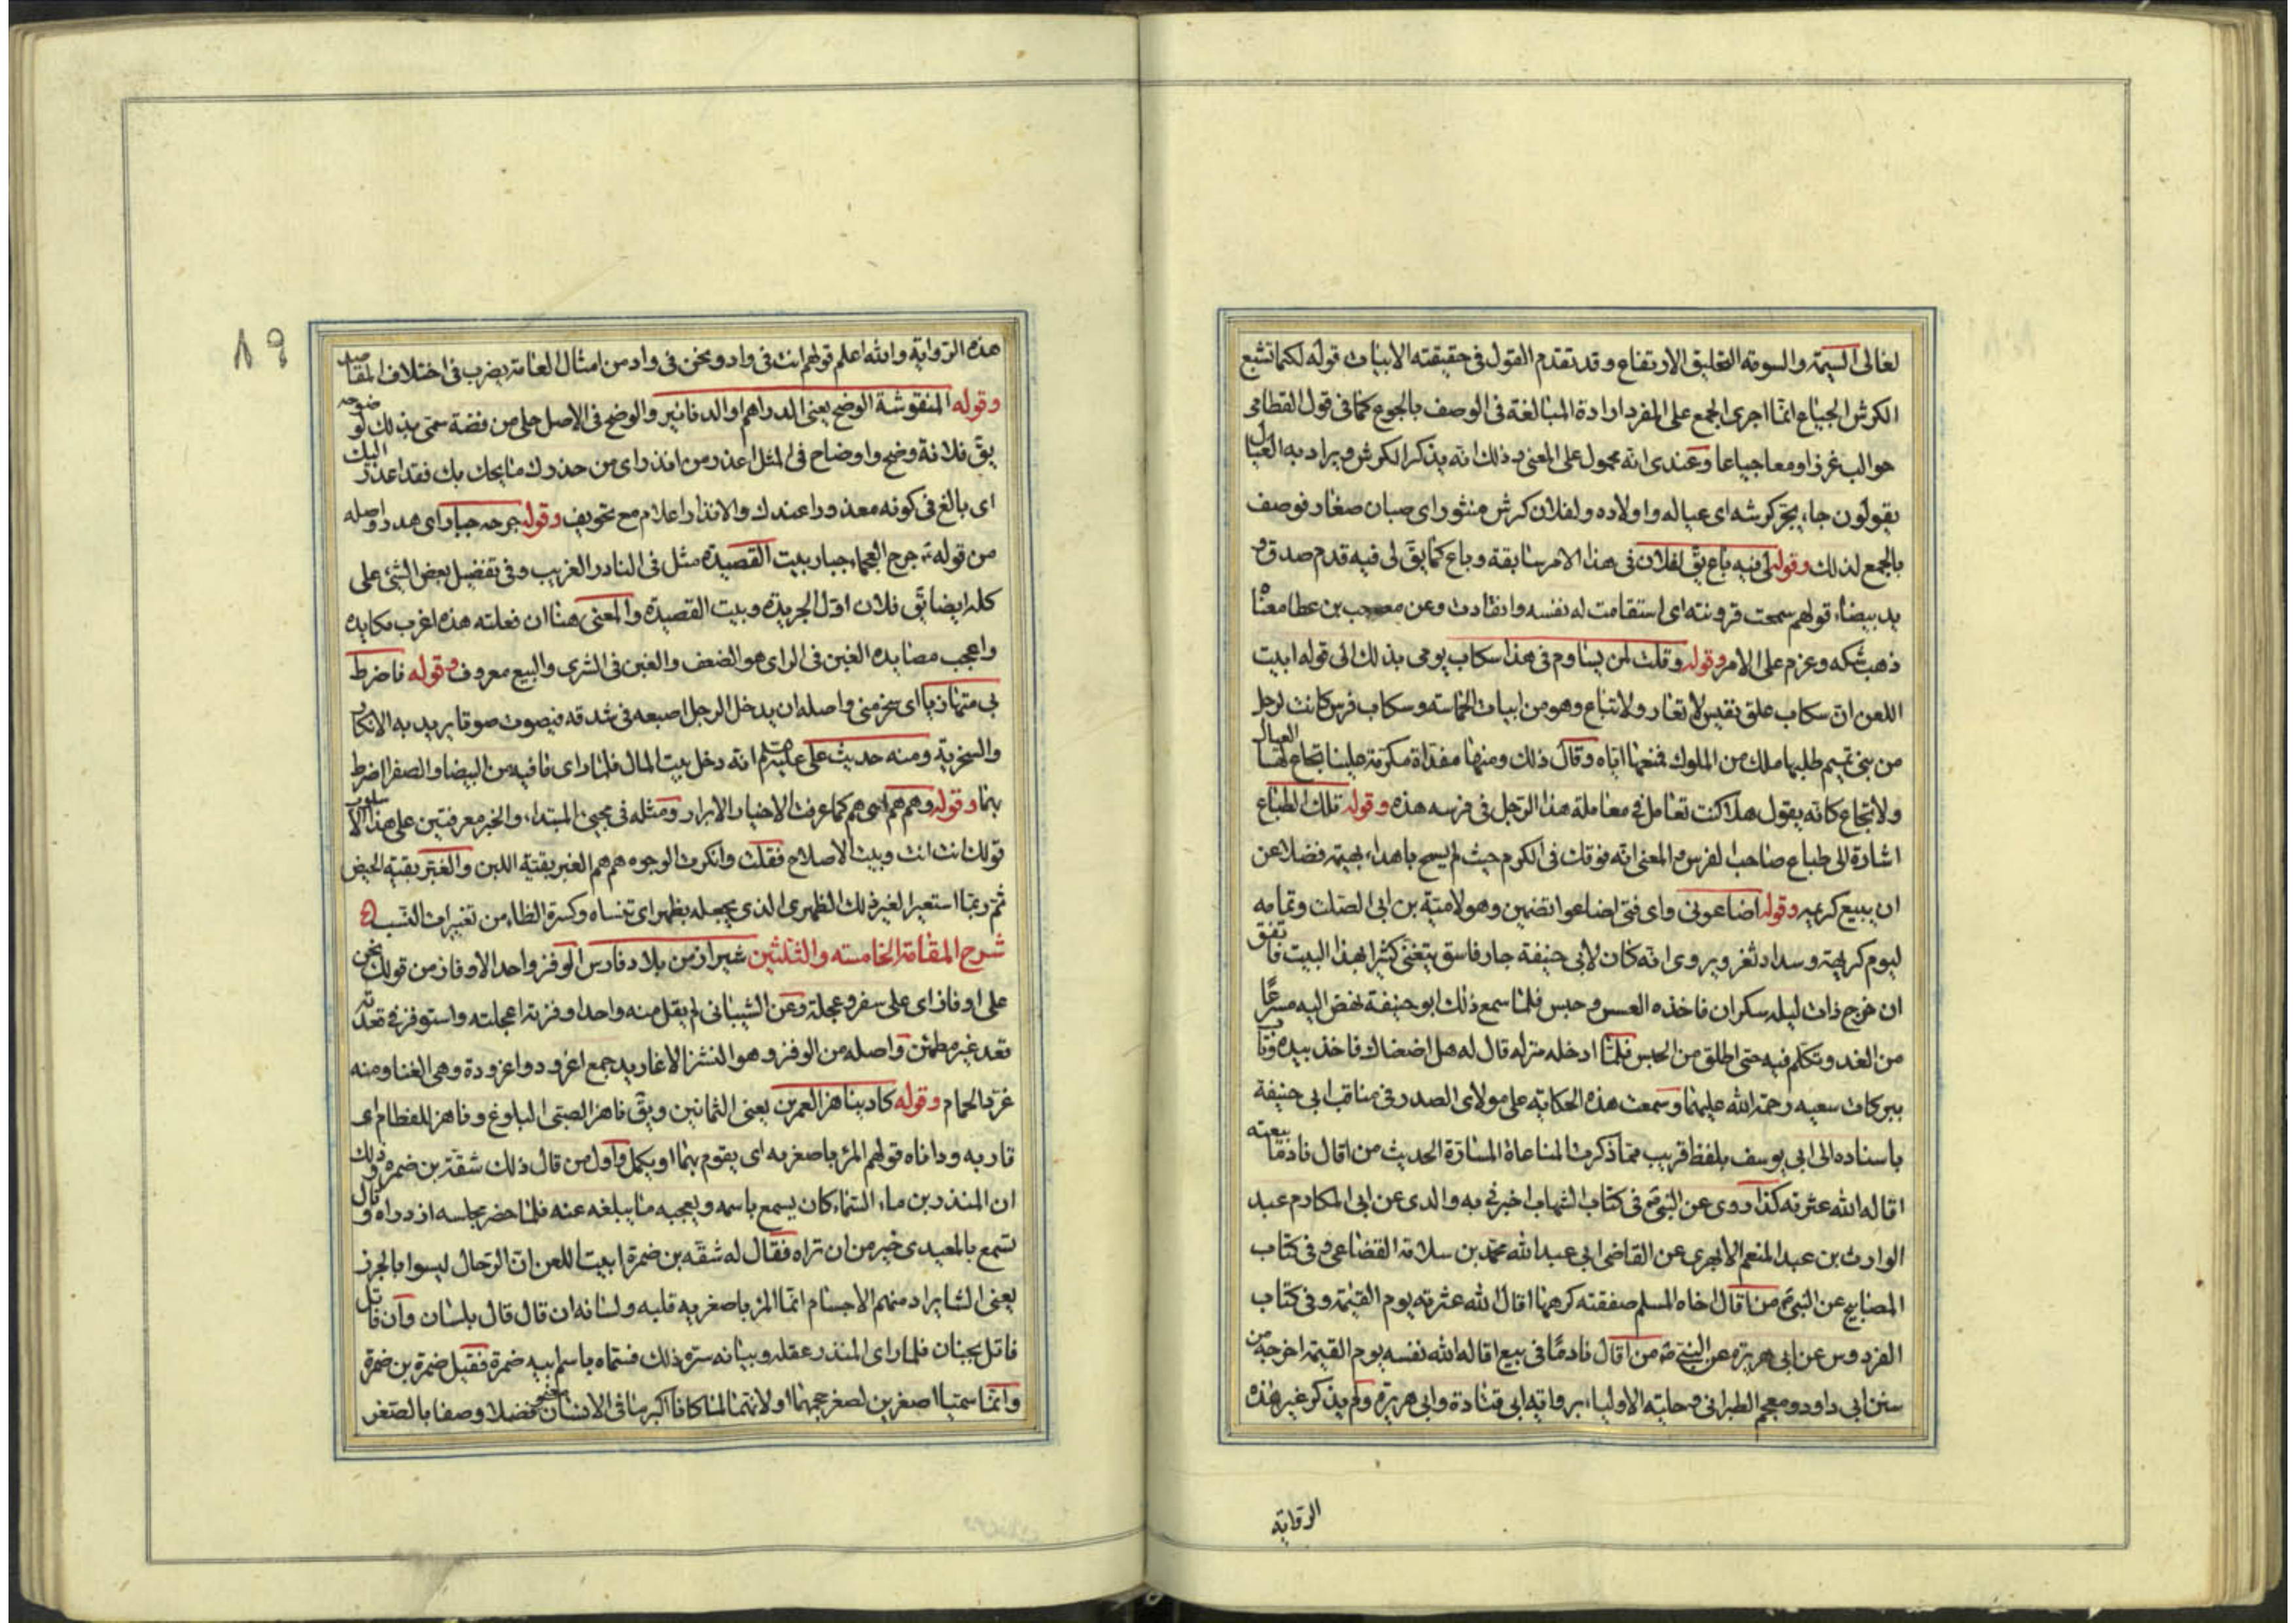 لغالى السيمة والسومة التحليق الارتفاع وقد تقدم القول فى حقيقته الابيات قوله لكما تشبع
الكرش الجياع انما اجرى الجمع على المفرد ارادة المبالغة فى الوصف بالجوع كما فى قول القطامى
حوالب غرزا ومعا جياعا وعندى انه محمول على المعنى وذلك انه يذكر الكرش ويراد به العيال
يقولون جاء يجر كرشه اى عياله واولاده ولفلان كرش منثور اى صبيان صغار فوصف
بالجمع لذلك وقوله لى فيه باع يق لفلان فى هذا الامر سابقة وباع كما يق لى فيه قدم صدق و
يد بيضاء قولهم سمحت قرونته اى استقامت له نفسه وانقادت وعن مصعب بن عطا معناه
ذهب شكه وعزم على الامر وقوله وقلت لمن يساوم فى هذا سكاب يومى بذلك الى قوله ابيت
اللعن ان سكاب علق نفيس لا تعار ولا تباع وهو من ابيات الحماسه وسكاب فرس كانت لرجل
من بنى تميم طلبها ملك من الملوك فمنعها اياه وقال ذلك ومنها مفداة مكرمة علينا يجاع لها العيال
ولا تجاع كانه يقول هلا كنت تعامل فى معاملة هذا الرجل فى فرسه هذه وقوله تلك الطباع
اشارة الى طباع صاحب الفرس والمعنى انه فوقك فى الكرم حيث لم يسمح باهداء بهيمة فضلا عن
ان يبيع كريمه وقوله اضاعونى واى فتى اضاعوا تضمين وهو لامية بن ابى الصلت وتمامه
ليوم كريهة وسداد ثغر ويروى انه كان لابى حنيفة جار فاسق يتغنى كثيرا بهذا البيت فاتفق
ان خرج ذات ليله سكران فاخذه العسس وحبس فلما سمع ذلك ابو حنيفة نهض اليه مسرعا
من الغد وتكلم فيه حتى اطلق من الحبس فلما ادخله منزله قال له هل اضعناك فاخذ بيده وتاب
ببركات سعيه رحمة الله عليهما وسمعت هذه الحكاية على مولاى الصدر فى مناقب ابى حنيفة
باسناده الى ابى يوسف بلفظ قريب مما ذكرت المناغاة المسارة الحديث من اقال نادما بيعته
اقاله الله عثرته كذا روى عن النبى فى كتاب الشهاب اخبرنى به والدى عن ابى المكارم عبد
الوارث بن عبد المنعم الابهرى عن القاضى ابى عبد الله محمد بن سلامة القضاعى وفى كتاب
المصابيح عن النبى من اقال اخاه المسلم صفقته كرهها اقال الله عثرته يوم القيمة وفى كتاب
الفردوس عن ابى هريرة عن النبى من اقال نادما فى بيع اقاله الله نفسه يوم القيمة اخرجه من
سنن ابى داود ومعجم الطبرانى وحلية الاولياء برواية ابى قتادة وابى هريرة ولم يذكر غير هذه
الرواية
٨٩
هذه الرواية والله اعلم قولهم انت فى واد ونحن فى واد من امثال العامة يضرب فى اختلاف المقاصد
وقوله المنقوشة الوضح يعنى الدراهم او الدنانير والوضح فى الاصل حلى من فضة سمى بذلك لوضوحه
يق فلانة وضح واوضاح فى المثل اعذر من انذر اى من حذرك ما يحل بك فقد اعذر اليك
اى بالغ فى كونه معذورا عندك والانذار اعلام مع تخويف وقوله جرحه جبار اى هدر واصله
من قوله جرح العجماء جبار بيت القصيدة مثل فى النادر الغريب وفى تفضيل بعض الشئ على
كله ايضا يق فلان اول الجريدة وبيت القصيدة والمعنى هنا ان فعلته هذه اغرب مكايده
واعجب مصايده الغبن فى الراى هو الضعف والغبن فى الشرى والبيع معروف وقوله فاضرط
بى متهازيا اى سخر منى واصله ان يدخل الرجل اصبعه فى شدقه فيصوت صوتا يريد به الانكار
والسخرية ومنه حديث على عليه السلم انه دخل بيت المال فلما راى ما فيه من البيضا والصفرا اضرط
بها وقوله وهم هم اى هم كما عرفت الاخيار الابرار ومثله فى مجيئ المبتداء والخبر معرفتين على هذا الاسلوب
قولك انت انت وبيت الاصلاح فقلت وانكرت الوجوه هم هم الغبر بقية اللبن والغبر بقية الحيض
ثم ربما استعير لغير ذلك الظهرى الذى يجعله بظهر اى تنساه وكسرة الظاء من تغييرات النسب
شرح المقامة الخامسه والثلثين شيراز من بلاد فارس الوفز واحد الاوفاز من قولك نحن
على اوفاز اى على سفر وعجلة وعن الشيبانى لم يقل منه واحدا وفزته اعجلته واستوفز فى قعدته
قعد غير مطمئن واصله من الوفز وهو النشز الاغاريد جمع اغرود واغرودة وهى الغنا ومنه
غرد الحمام وقوله كاد يناهز العمرين يعنى الثمانين ويق ناهز الصبى البلوغ وناهز للفطام اى
قاربه وداناه قولهم المرء باصغريه اى يقوم بهما او يكمل واول من قال ذلك شقة بن ضمره وذلك
ان المنذر بن ماء السماء كان يسمع باسمه ويعجبه ما يبلغه عنه فلما حضر مجلسه ازدراه وقال
تسمع بالمعيدى خير من ان تراه فقال له شقه بن ضمرة ابيت اللعن ان الرجال ليسوا بالجزر
يعنى الشا يراد منهم الاجسام انما المرء باصغريه قلبه ولسانه ان قال قال بلسان وان قاتل
قاتل بجنان فلما راى المنذر عقله وبيانه سره ذلك فسماه باسم ابيه ضمرة فقيل ضمرة بن ضمرة
وانما سميا اصغرين لصغر حجمهما او لانهما لما كانا اكبر ما فى الانسان معنى وفضلا وصفا بالصغر